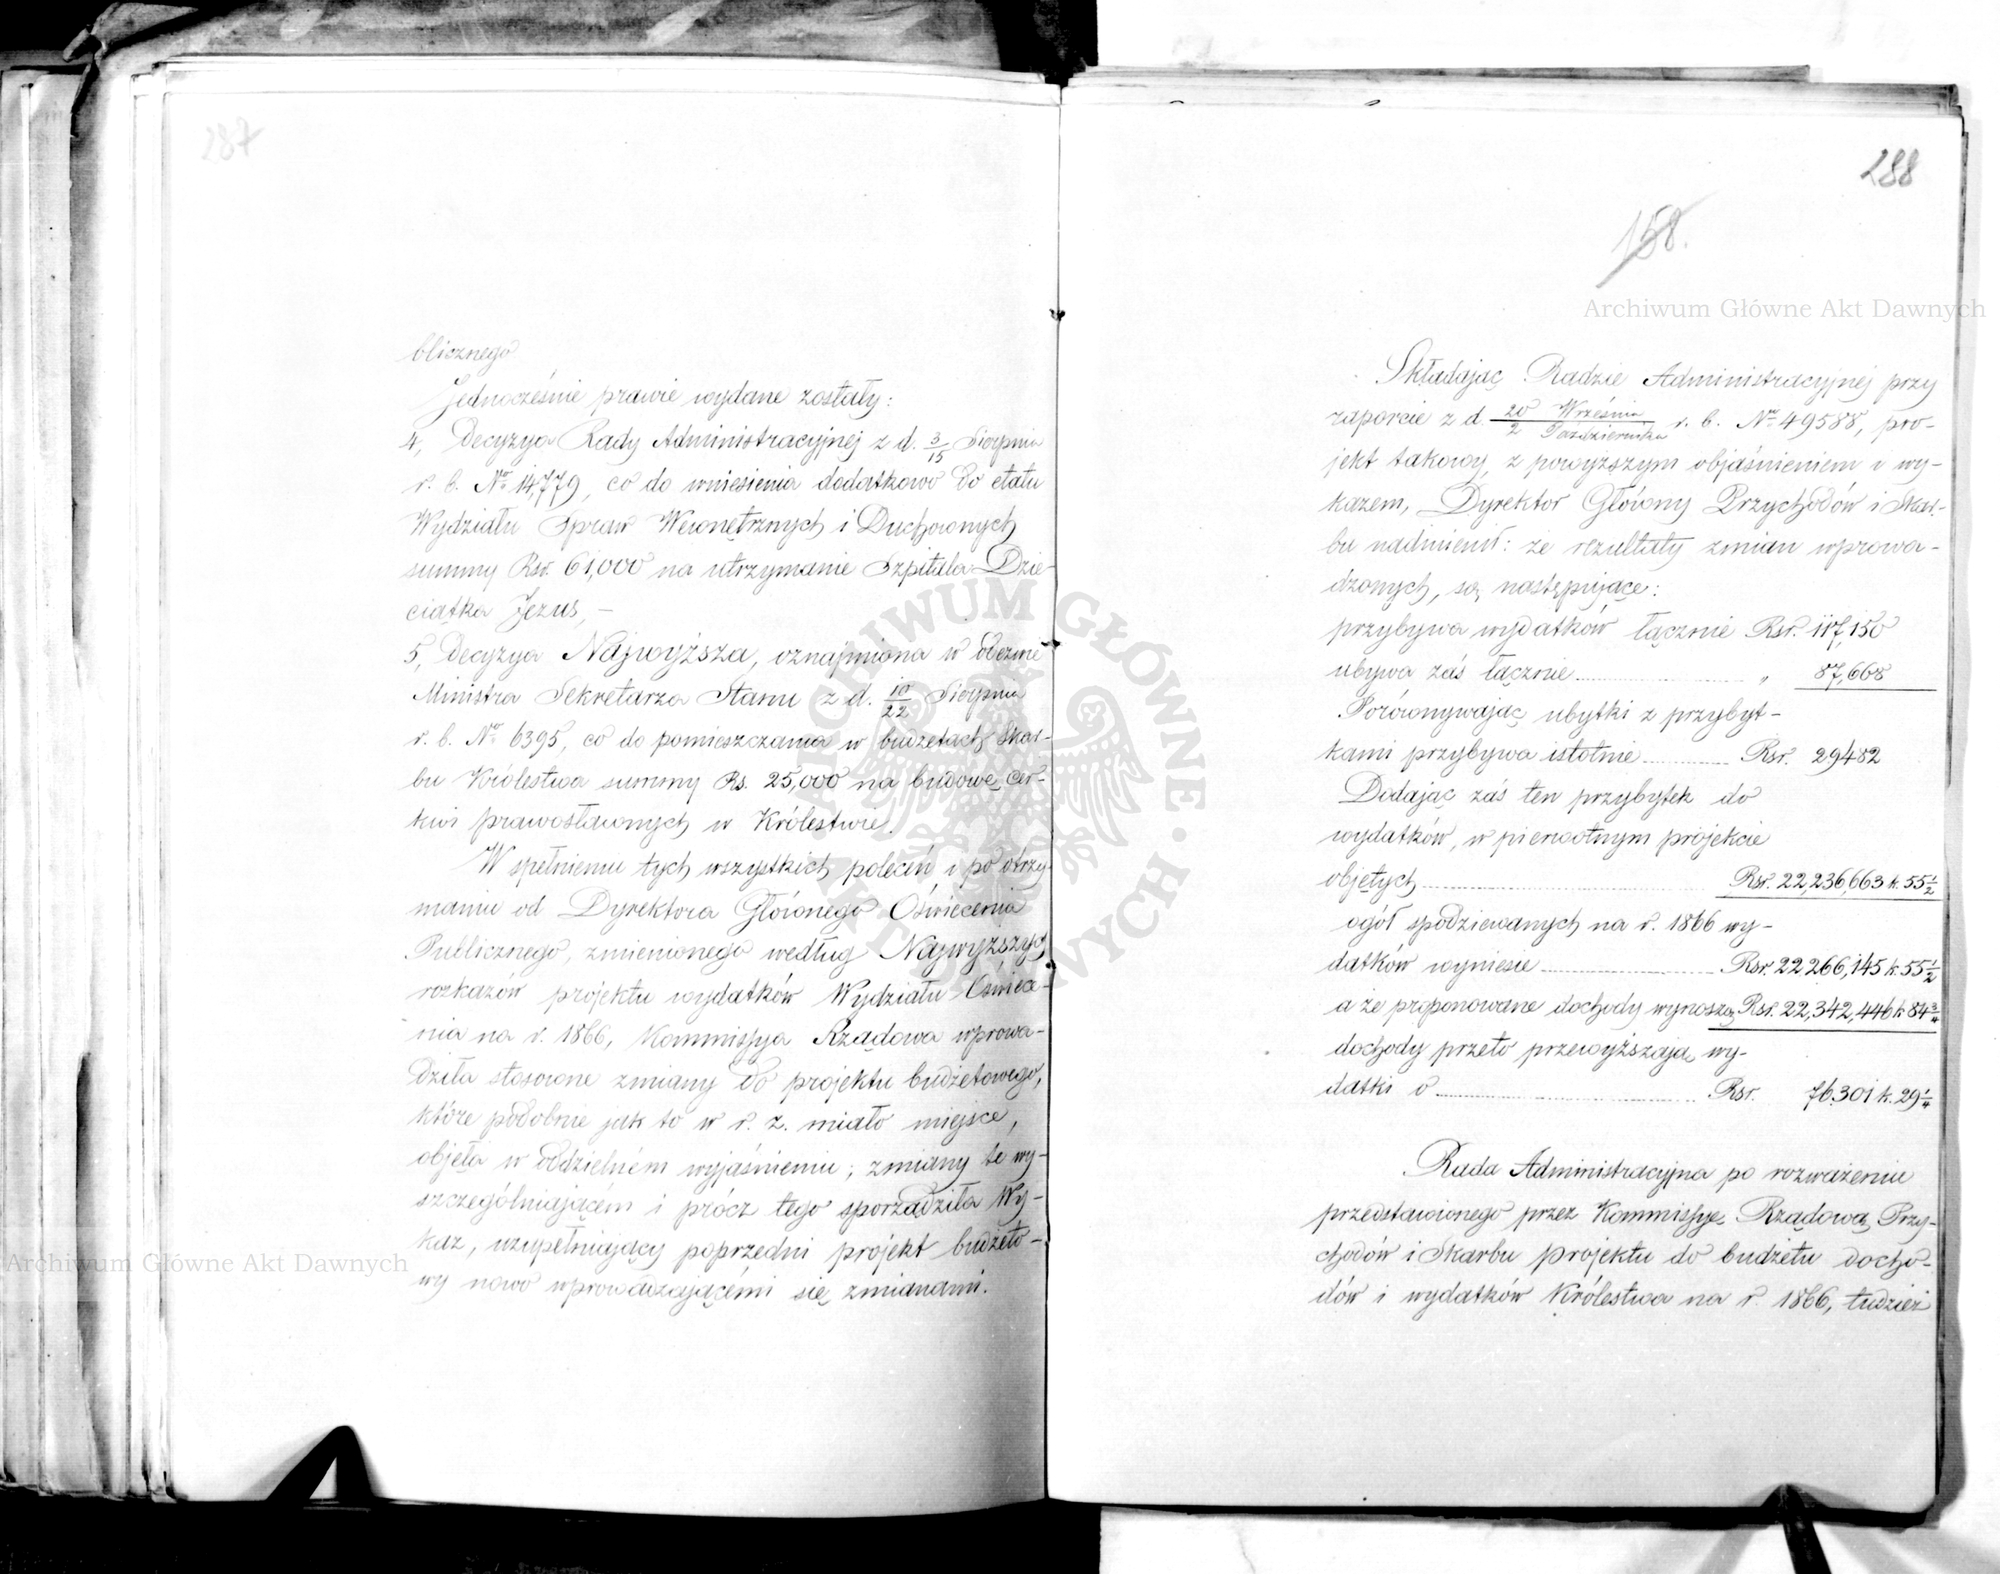 287
blicznego
Jednocześnie prawie wydane zostały:
4, Decyzya Rady Administracyjnej z d. 3/15 Sierpnia
r. b. No 14,779, co do wniesienia dodatkowo do etatu
Wydziału Spraw Wewnętrznych i Duchownych
summy Rsr. 61,000 na utrzymanie Szpitala Dzie-
ciątka Jezus, –
5, Decyzya Najwyższa, oznajmiona w odezwie
Ministra Sekretarza Stanu z d. 10/22 Sierpnia
r. b. No 6395, co do pomieszczania w budżetach Skar-
bu Królestwa summy Rs. 25,000 na budowę cer-
kwi prawosławnych w Królestwie.
W spełnieniu tych wszystkich poleceń i po otrzy-
maniu od Dyrektora Głównego Oświecenia
Publicznego, zmienionego według Najwyższych
rozkazów projektu wydatków Wydziału Oświece-
nia na r. 1866, Kommissya Rządowa wprowa-
dziła stosowne zmiany do projektu budżetowego,
które podobnie jak to w r. z. miało miejsce,
objęła w oddzielném wyjaśnieniu, zmiany te wy-
szczególniającém i prócz tego sporządziła Wy-
kaz, uzupełniający poprzedni projekt budżeto-
wy nowo wprowadzającémi się zmianami.
288
158.
Składając Radzie Administracyjnej przy
raporcie z d. 20 Września / 2 Października r. b. No 49588, pro-
jekt takowy, z powyższym objaśnieniem i wy-
kazem, Dyrektor Główny Przychodów i Skar-
bu nadmienił: że rezultaty zmian wprowa-
dzonych, są następujące:
przybywa wydatków łącznie Rsr. 117,150
ubywa zaś łącznie „ 87,668
Porównywając ubytki z przybyt-
kami przybywa istotnie Rsr. 29482
Dodając zaś ten przybytek do
wydatków, w pierwotnym projekcie
objętych Rsr. 22,236,663 k. 55 1/2
ogół spodziewanych na r. 1866 wy-
datków wyniesie Rsr. 22 266,145 k. 55 1/2
a że proponowane dochody wynoszą Rsr. 22,342,446 k 84 3/4
dochody przeto przewyższają wy-
datki o Rsr. 76.301 k. 29 1/4
Rada Administracyjna po rozważeniu
przedstawionego przez Kommissye Rządową Przy-
chodów i Skarbu projektu do budżetu docho-
dów i wydatków Królestwa na r. 1866, tudzież
Archiwum Główne Akt Dawnych
Archiwum Główne Akt Dawnych
ARCHIWUM GŁÓWNE AKT DAWNYCH